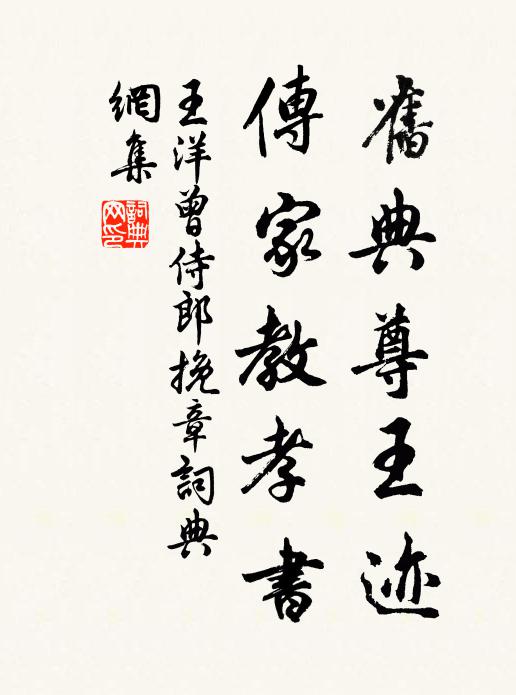 舊典尊王迹
傳家教孝書
王洋曾侍郎挽章詞典
網集
詞典网印